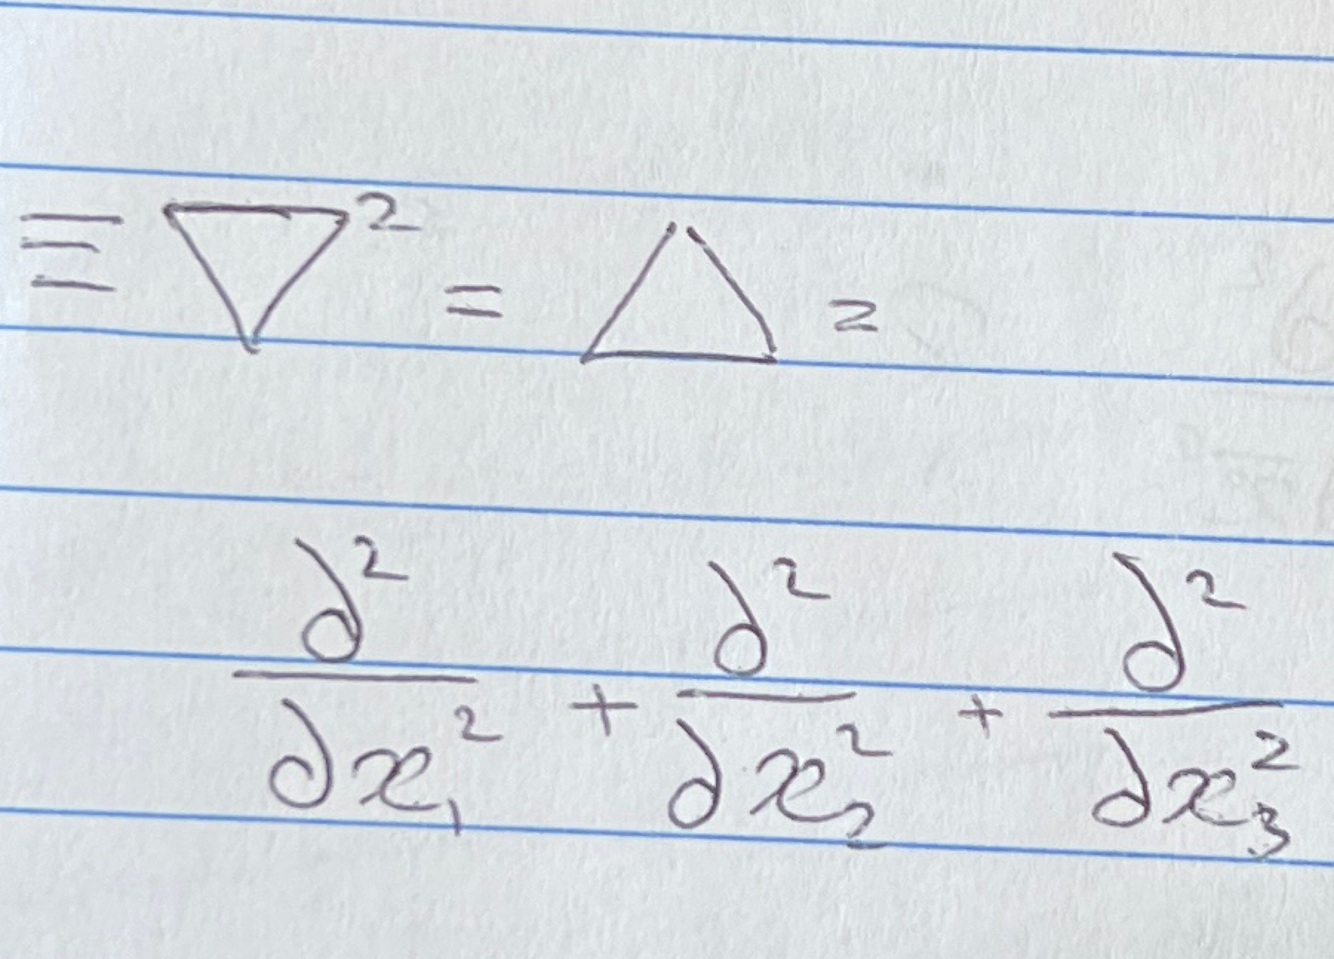 ≡ ∇² = △ =
∂²/∂x₁² + ∂²/∂x₂² + ∂²/∂x₃²